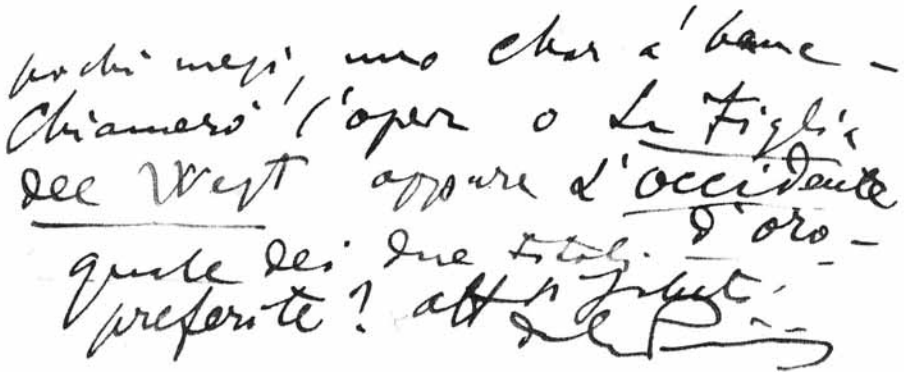 pochi mesi, uno char à banc -
Chiamerò l'opera o La Figlia
del West oppure L'occidente
d'oro -
quale dei due titoli
preferite? aff saluti
del